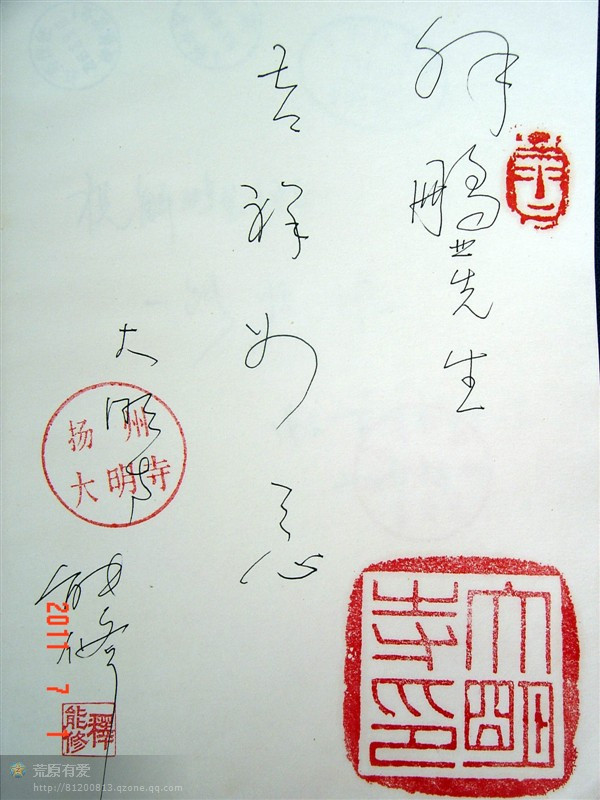 鹏
先生
吉祥如意
大明寺
能修
扬州
大明寺
大明寺印
釋能修
2011 7 1
荒原有爱
http://81200813.qzone.qq.com/